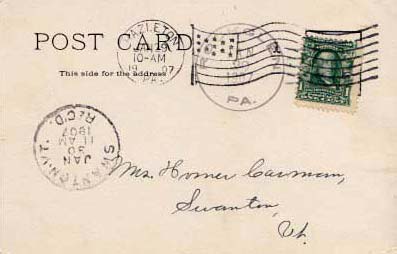 POST CARD
HAZLETON
10-AM
19 07
PA.
PA.
This side for the address
SWANTON, VT.
JAN
30
11 AM
1907
REC'D.
Mr. Homer Carman,
Swanton,
Vt.